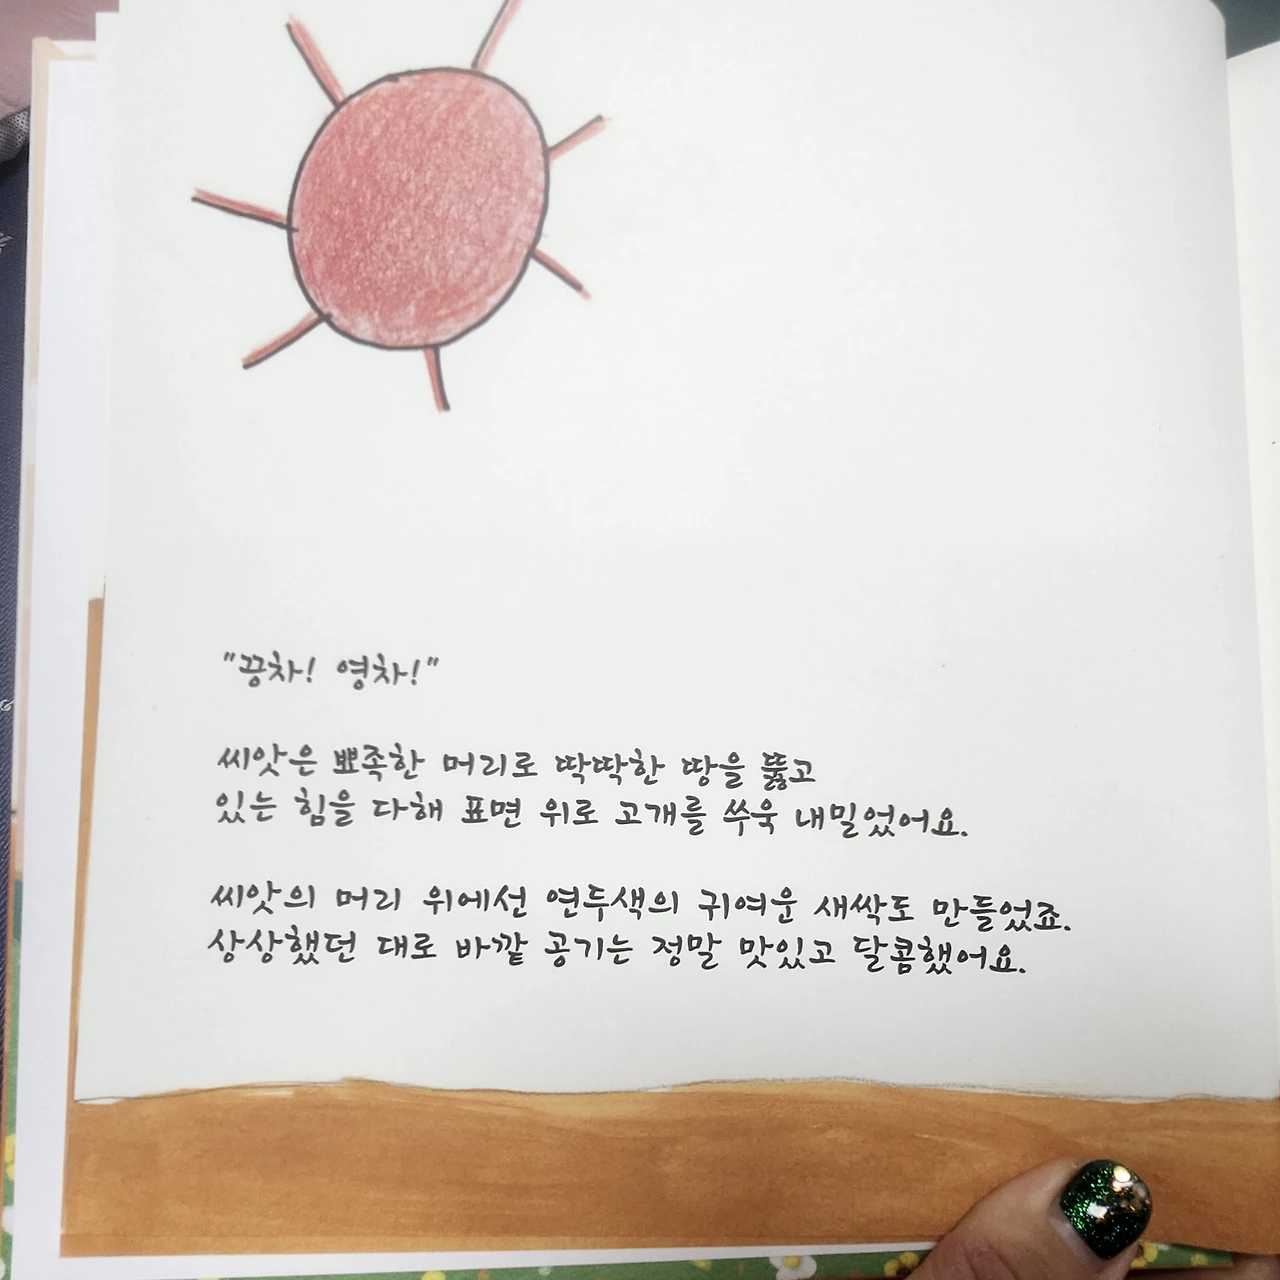 "끙차! 영차!"
씨앗은 뾰족한 머리로 딱딱한 땅을 뚫고
있는 힘을 다해 표면 위로 고개를 쑤욱 내밀었어요.
씨앗의 머리 위에선 연두색의 귀여운 새싹도 만들었죠.
상상했던 대로 바깥 공기는 정말 맛있고 달콤했어요.